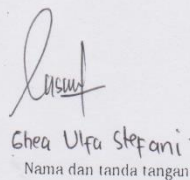 Ghea Ulfa Stefani
Nama dan tanda tangan